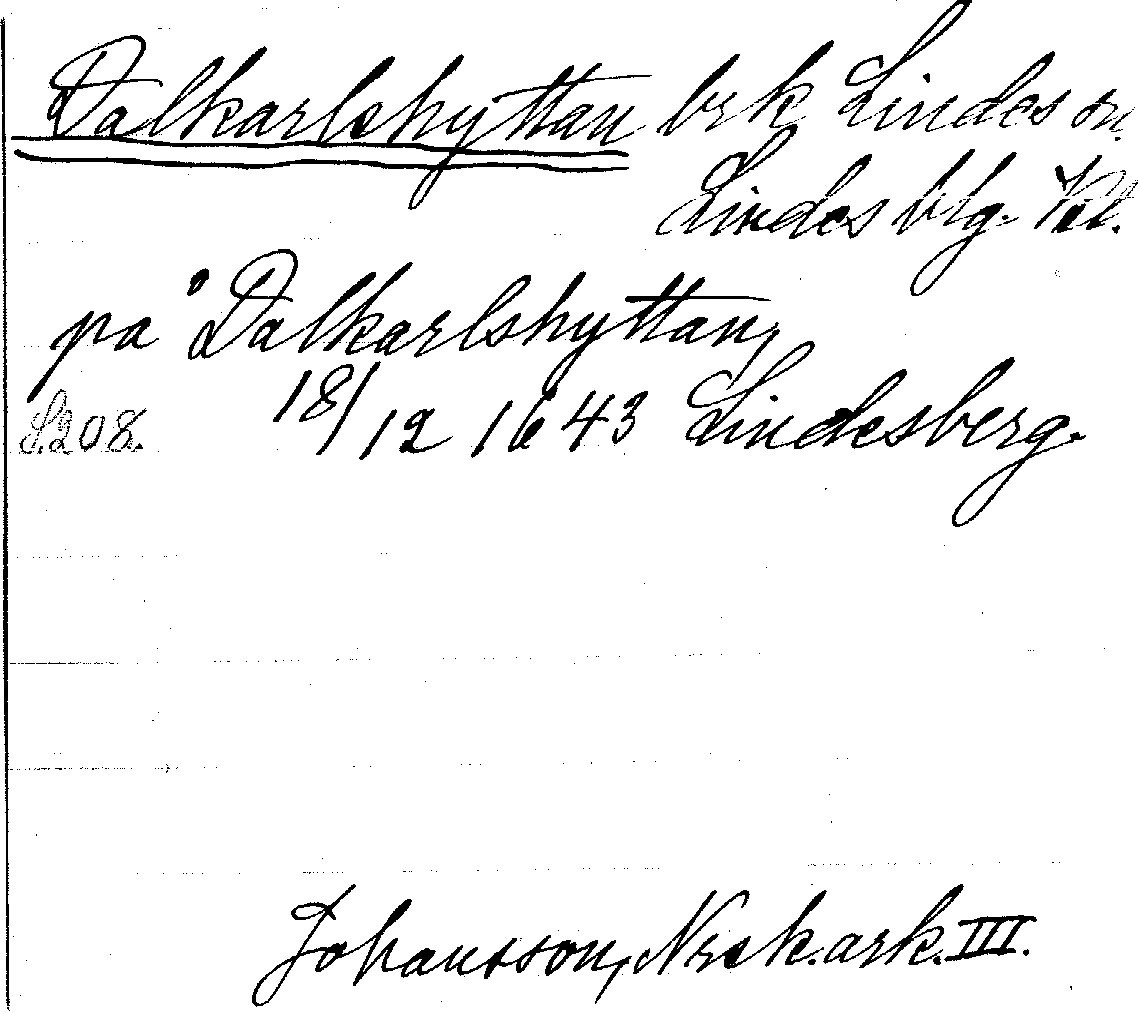 Dalkarlshyttan brk Lindes sn.
Lindes blg.
på Dalkarlshyttan,
S.208. 18/12 1643 Lindesberg.
Johansson, Nrek.ark. III.